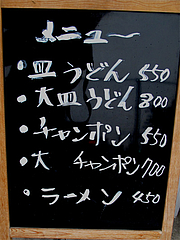 メニュー
・皿うどん 550
・大皿うどん 800
・チャンポン 550
・大 チャンポン 700
・ラーメン 450